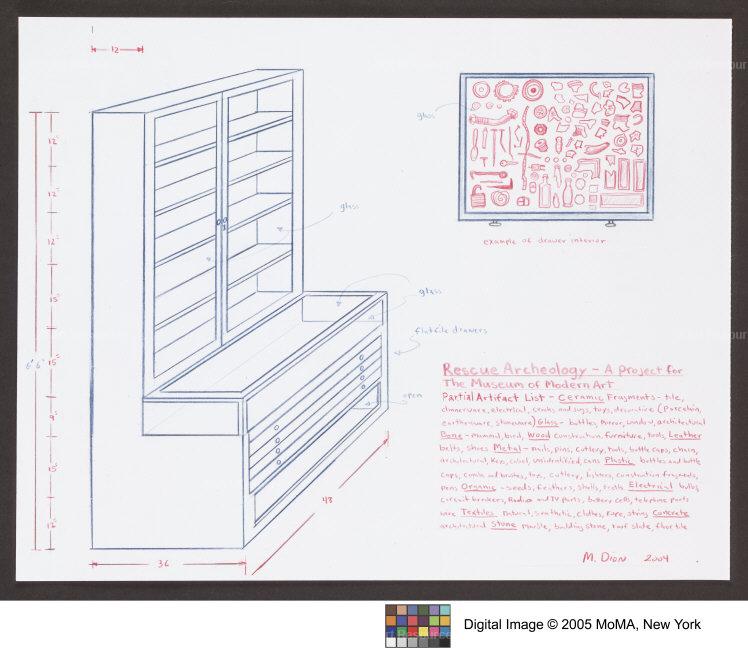 12
12"
12"
12"
15"
6' 6"
15"
9"
15"
12"
36
43
glass
glass
flatfile drawers
open
glass
example of drawer interior
Rescue Archeology - A Project for
The Museum of Modern Art
Partial Artifact List - Ceramic Fragments - tile,
dinnerware, electrical, crocks and jugs, toys, decorative (Porcelain,
earthenware, stoneware) Glass - bottles, mirror, window, architectural
Bone - mammal, bird, Wood construction, furniture, tools Leather
belts, shoes Metal - nails, pins, cutlery, tools, bottle caps, chain,
architectural, keys, cable, unidentified, cans Plastic bottles and bottle
caps, combs and brushes, toys, cutlery, lighters, construction fragments,
pens Organic - seeds, feathers, shells, corals Electrical bulbs,
circuit breakers, Radio and TV parts, battery cells, telephone parts
wire Textiles natural, synthetic, clothes, rope, string Concrete
architectural Stone marble, building stone, roof slate, floor tile
M. Dion 2004
Digital Image © 2005 MoMA, New York